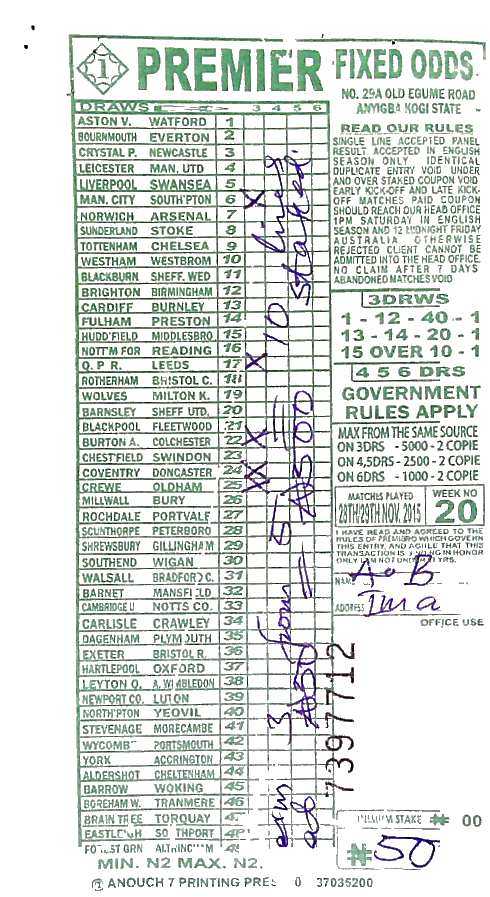 1 PREMIER FIXED ODDS
NO. 29A OLD EGUME ROAD
ANYIGBA KOGI STATE
DRAWS 3 4 5 6
ASTON V. WATFORD 1
BOURNMOUTH EVERTON 2
CRYSTAL P. NEWCASTLE 3
LEICESTER MAN. UTD 4
LIVERPOOL SWANSEA 5
MAN. CITY SOUTH'PTON 6 X
NORWICH ARSENAL 7
SUNDERLAND STOKE 8
TOTTENHAM CHELSEA 9
WESTHAM WESTBROM 10
BLACKBURN SHEFF. WED 11
BRIGHTON BIRMINGHAM 12
CARDIFF BURNLEY 13
FULHAM PRESTON 14
HUDD'FIELD MIDDLESBRO 15
NOTT'M FOR READING 16
Q. P. R. LEEDS 17 X
ROTHERHAM BRISTOL C. 18
WOLVES MILTON K. 19
BARNSLEY SHEFF UTD. 20
BLACKPOOL FLEETWOOD 21
BURTON A. COLCHESTER 22 X
CHEST'FIELD SWINDON 23
COVENTRY DONCASTER 24
CREWE OLDHAM 25
MILLWALL BURY 26
ROCHDALE PORTVALE 27
SCUNTHORPE PETERBORO 28
SHREWSBURY GILLINGHAM 29
SOUTHEND WIGAN 30
WALSALL BRADFORD C. 31
BARNET MANSFIELD 32
CAMBRIDGE U NOTTS CO. 33
CARLISLE CRAWLEY 34
DAGENHAM PLYMOUTH 35
EXETER BRISTOL R. 36
HARTLEPOOL OXFORD 37
LEYTON O. A. WIMBLEDON 38
NEWPORT CO. LUTON 39
NORTH'PTON YEOVIL 40
STEVENAGE MORECAMBE 41
WYCOMB PORTSMOUTH 42
YORK ACCRINGTON 43
ALDERSHOT CHELTENHAM 44
BARROW WOKING 45
BOREHAM W. TRANMERE 46
BRAIN TREE TORQUAY
EASTLEIGH SO THPORT
MIN. N2 MAX. N2.
3 from 5 = 10 lines
₦50 = ₦500 staked.
READ OUR RULES
SINGLE LINE ACCEPTED PANEL
RESULT ACCEPTED IN ENGLISH
SEASON ONLY. IDENTICAL
DUPLICATE ENTRY VOID UNDER
AND OVER STAKED COUPON VOID
EARLY KICK-OFF AND LATE KICK-
OFF MATCHES PAID COUPON
SHOULD REACH OUR HEAD OFFICE
1PM SATURDAY IN ENGLISH
SEASON AND 12 MIDNIGHT FRIDAY
AUSTRALIA OTHERWISE
REJECTED CLIENT CANNOT BE
ADMITTED INTO THE HEAD OFFICE.
NO CLAIM AFTER 7 DAYS
ABANDONED MATCHES VOID
3DRWS
1 - 12 - 40 - 1
13 - 14 - 20 - 1
15 OVER 10 - 1
4 5 6 DRS
GOVERNMENT
RULES APPLY
MAX FROM THE SAME SOURCE
ON 3DRS - 5000 - 2 COPIE
ON 4,5DRS - 2500 - 2 COPIE
ON 6DRS - 1000 - 2 COPIE
MATCHES PLAYED
28TH/29TH NOV. 2015
WEEK NO
20
I HAVE READ AND AGREED TO THE
RULES OF PREMIERO WHICH GOVERN
THIS ENTRY, AND AGREE THAT THIS
NAME
ADDRESS
OFFICE USE
7397712
STAKE ₦ 00
₦50
ANOUCH 7 PRINTING PRES 0 37035200